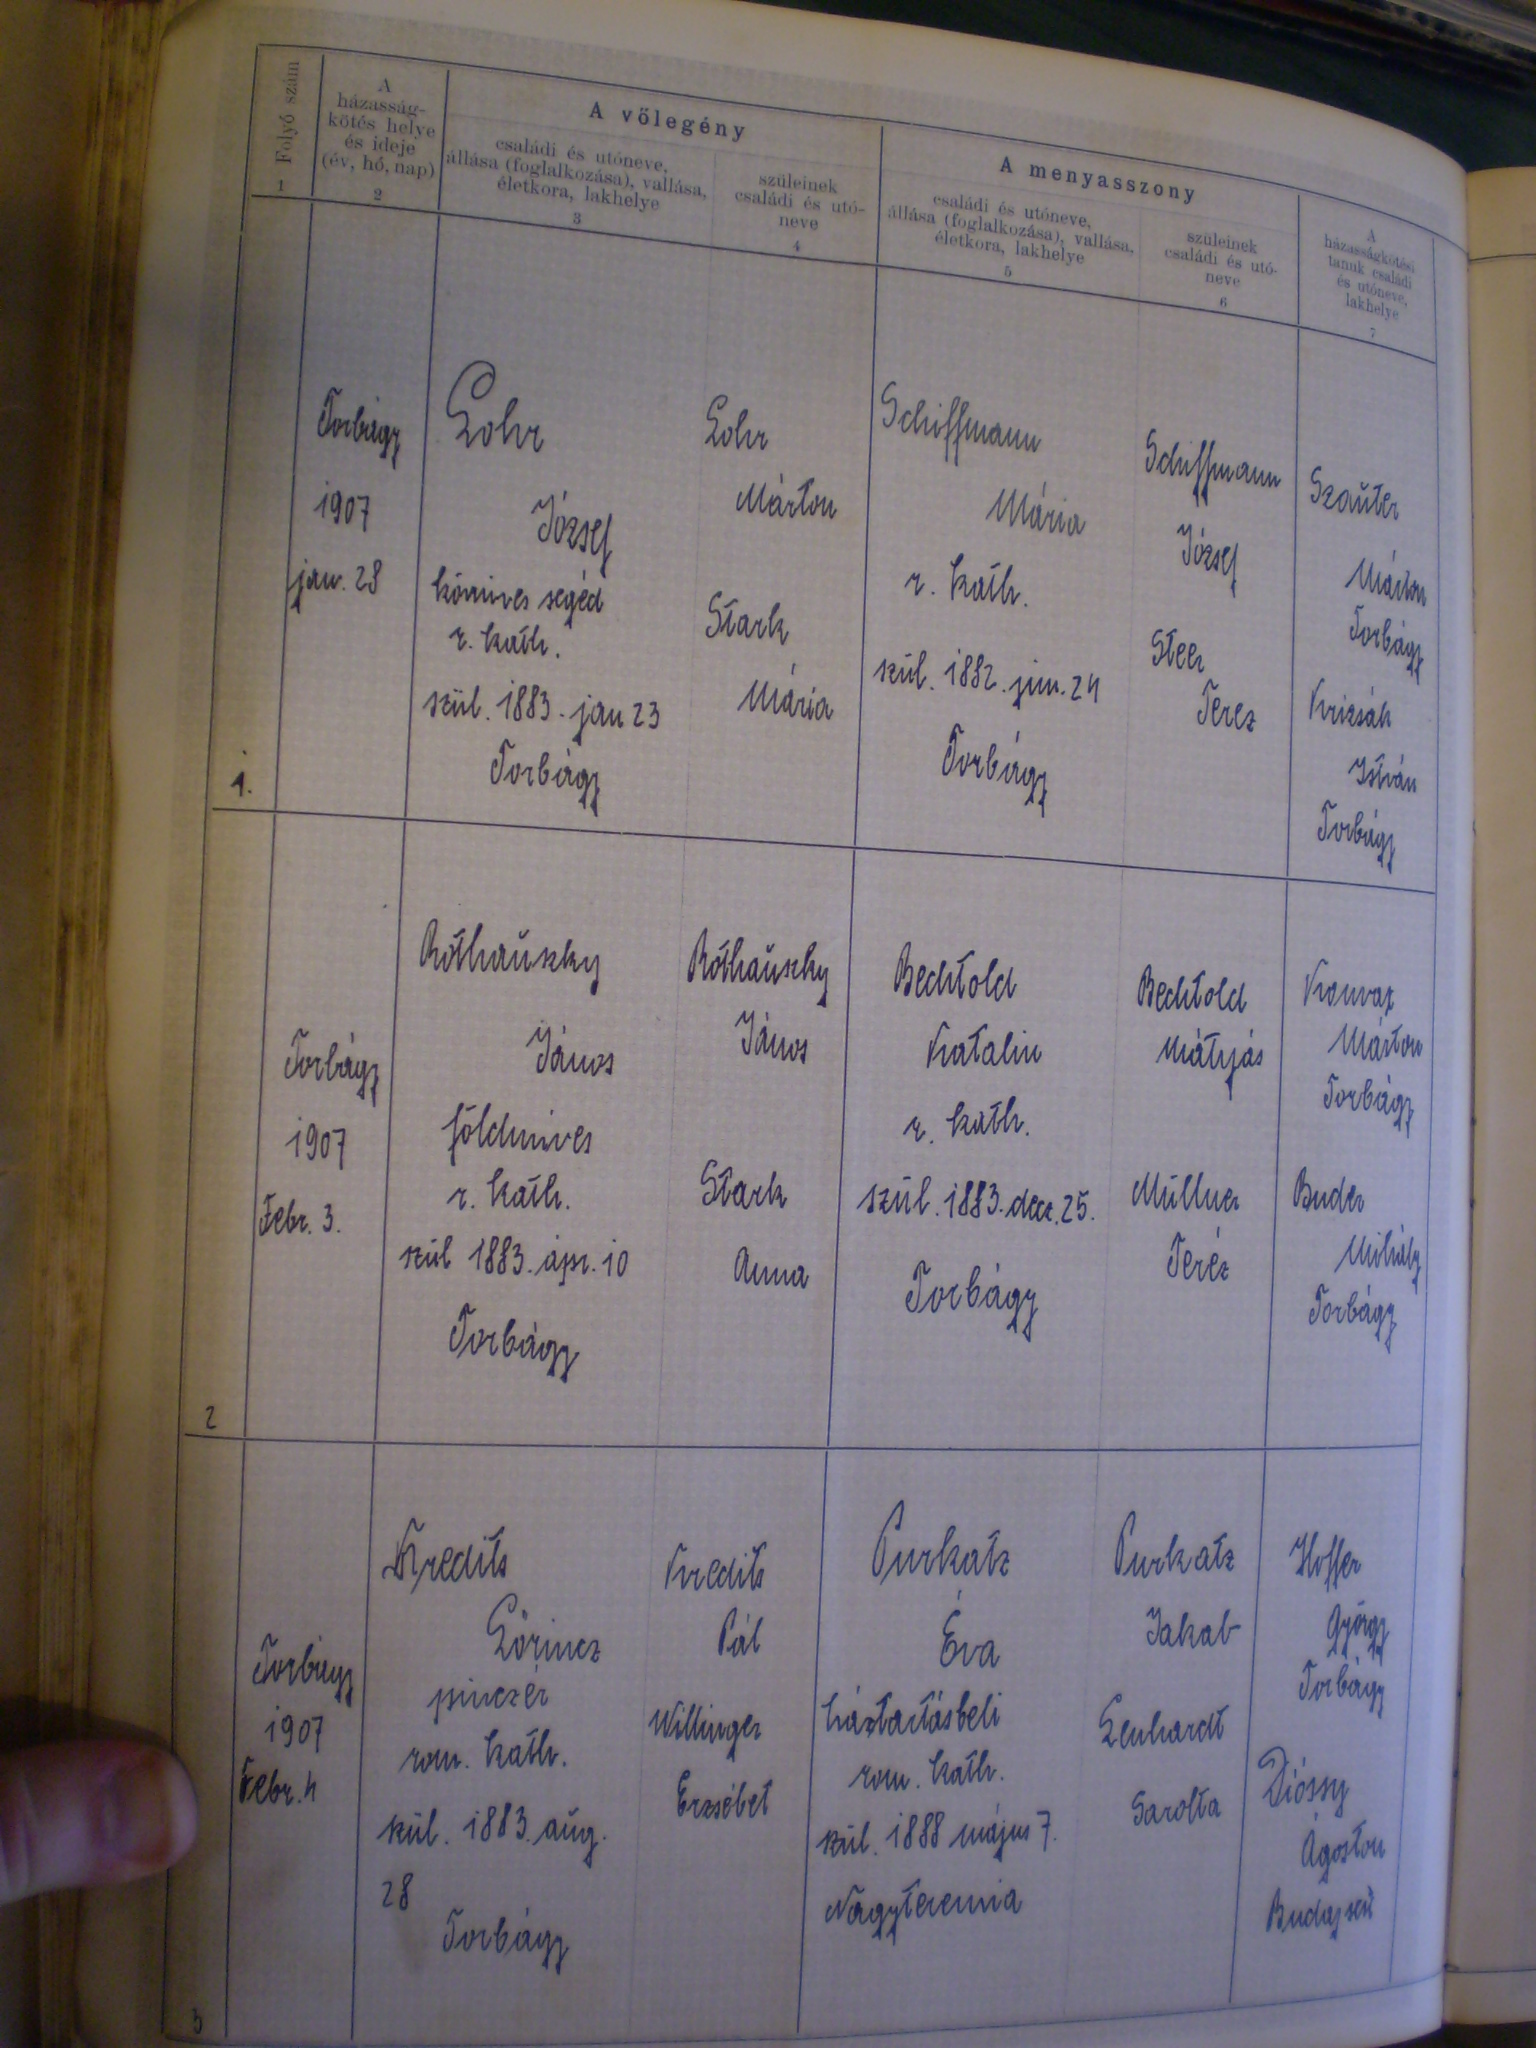 Folyó szám
1
A
házasság-
kötés helye
és ideje
(év, hó, nap)
2
A vőlegény
családi és utóneve,
állása (foglalkozása), vallása,
életkora, lakhelye
3
szüleinek
családi és utó-
neve
4
A menyasszony
családi és utóneve,
állása (foglalkozása), vallása,
életkora, lakhelye
5
szüleinek
családi és utó-
neve
6
A
házasságkötési
tanuk családi
és utóneve,
lakhelye
7
1.
Torbágy
1907
jan. 28
Lohr
József
kőmives segéd
r. kath.
szül. 1883. jan 23
Torbágy
Lohr
Márton
Stark
Mária
Schiffmann
Mária
r. kath.
szül. 1882. jun. 24
Torbágy
Schiffmann
József
Steer
Terez
Szauter
Márton
Torbágy
Krizsák
István
Torbágy
2
Torbágy
1907
Febr. 3.
Róthauszky
János
földmives
r. kath.
szül 1883. ápr. 10
Torbágy
Róthauszky
János
Stark
Anna
Bechtold
Katalin
r. kath.
szül. 1883. decz. 25.
Torbágy
Bechtold
Mátyás
Müllner
Teréz
Márton
Torbágy
Buder
Mihály
Torbágy
3
Torbágy
1907
Febr. 4
Kredits
Lőrincz
pinczér
rom. kath.
szül. 1883. aug.
28
Torbágy
Kredits
Pál
Willinger
Erzsébet
Purkatz
Éva
háztartásbeli
rom. kath.
szül. 1888 május 7.
Nagyteremia
Purkatz
Jakab
Lenhardt
Sarolta
Hoffer
György
Torbágy
Dióssy
Ágoston